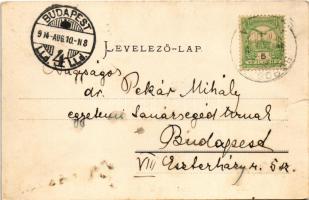 BUDAPEST
914-AUG.10-N8
4
LEVELEZŐ-LAP.
5
Nagyságos
dr. Pekár Mihály
egyetemi tanársegéd úrnak
Budapest
VIII Eszterházy u. 5 sz.